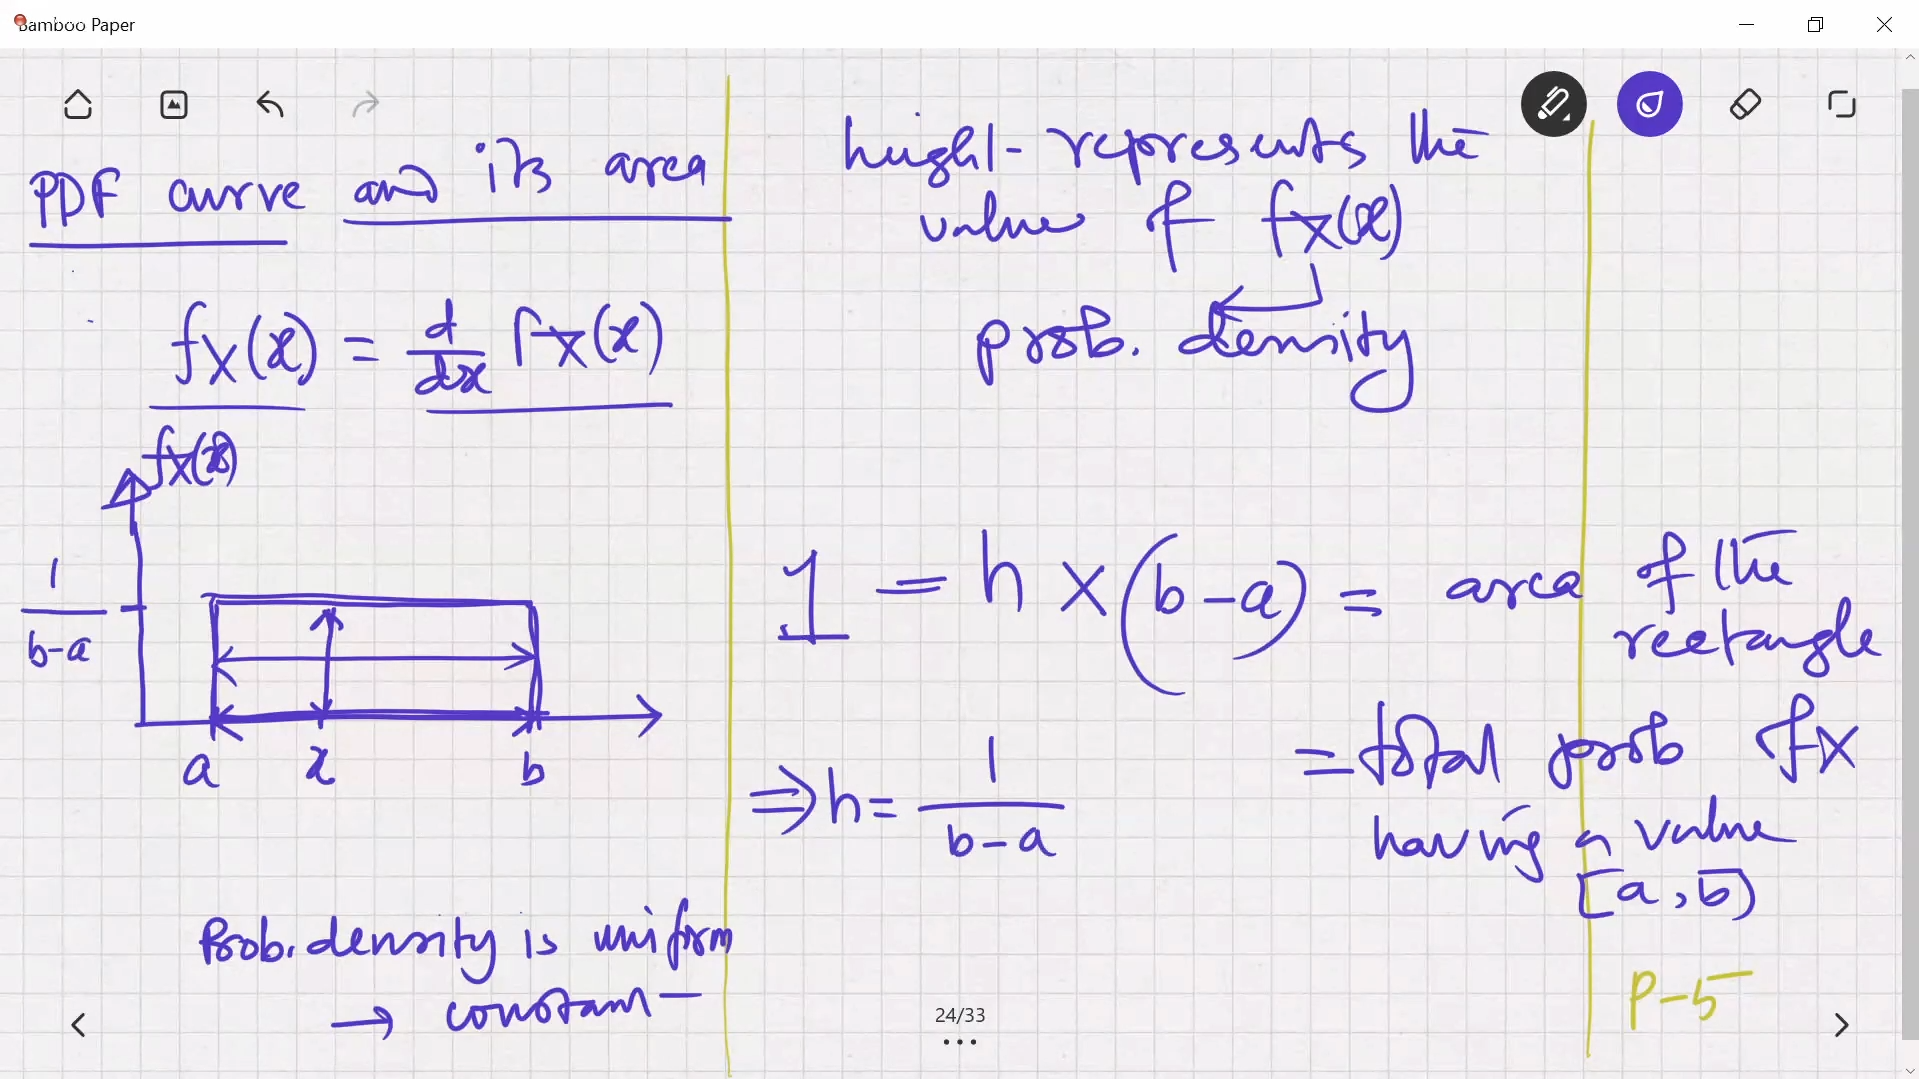 Bamboo Paper
PDF curve and its area
fX(x) = d/dx FX(x)
fX(x)
1/(b-a)
a x b
Prob. density is uniform
→ constant
height represents the
value of fX(x)
prob. density
1 = h × (b-a) = area of the
rectangle
= total prob of X
having a value
[a, b)
⇒ h = 1/(b-a)
P-5
24/33